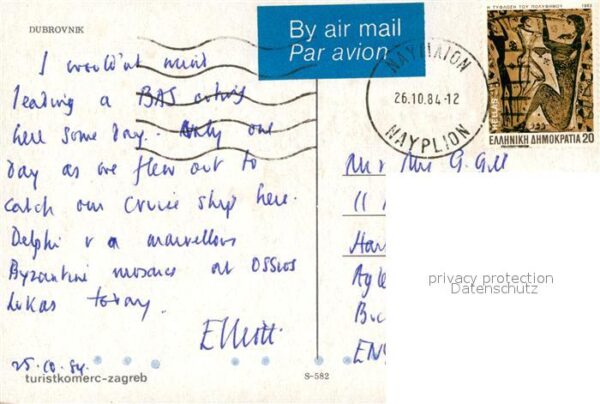 DUBROVNIK
By air mail
Par avion
Η ΤΥΦΛΩΣΗ ΤΟΥ ΠΟΛΥΦΗΜΟΥ 1983
HELLAS
ΕΛΛΗΝΙΚΗ ΔΗΜΟΚΡΑΤΙΑ 20
ΝΑΥΠΛΙΟΝ
26.10.84-12
NAYPLION
I would'nt mind
leading a BAS outing
here some day. Only one
day as we flew out to
catch our cruise ship here.
Delphi & a marvellous
Byzantine mosaics at OSSIOS
Lukas today.
Elliott.
25.10.84.
Mr & Mrs G. Gill
11
Ayle
Buc
ENG
turistkomerc-zagreb
S-582
privacy protection
Datenschutz